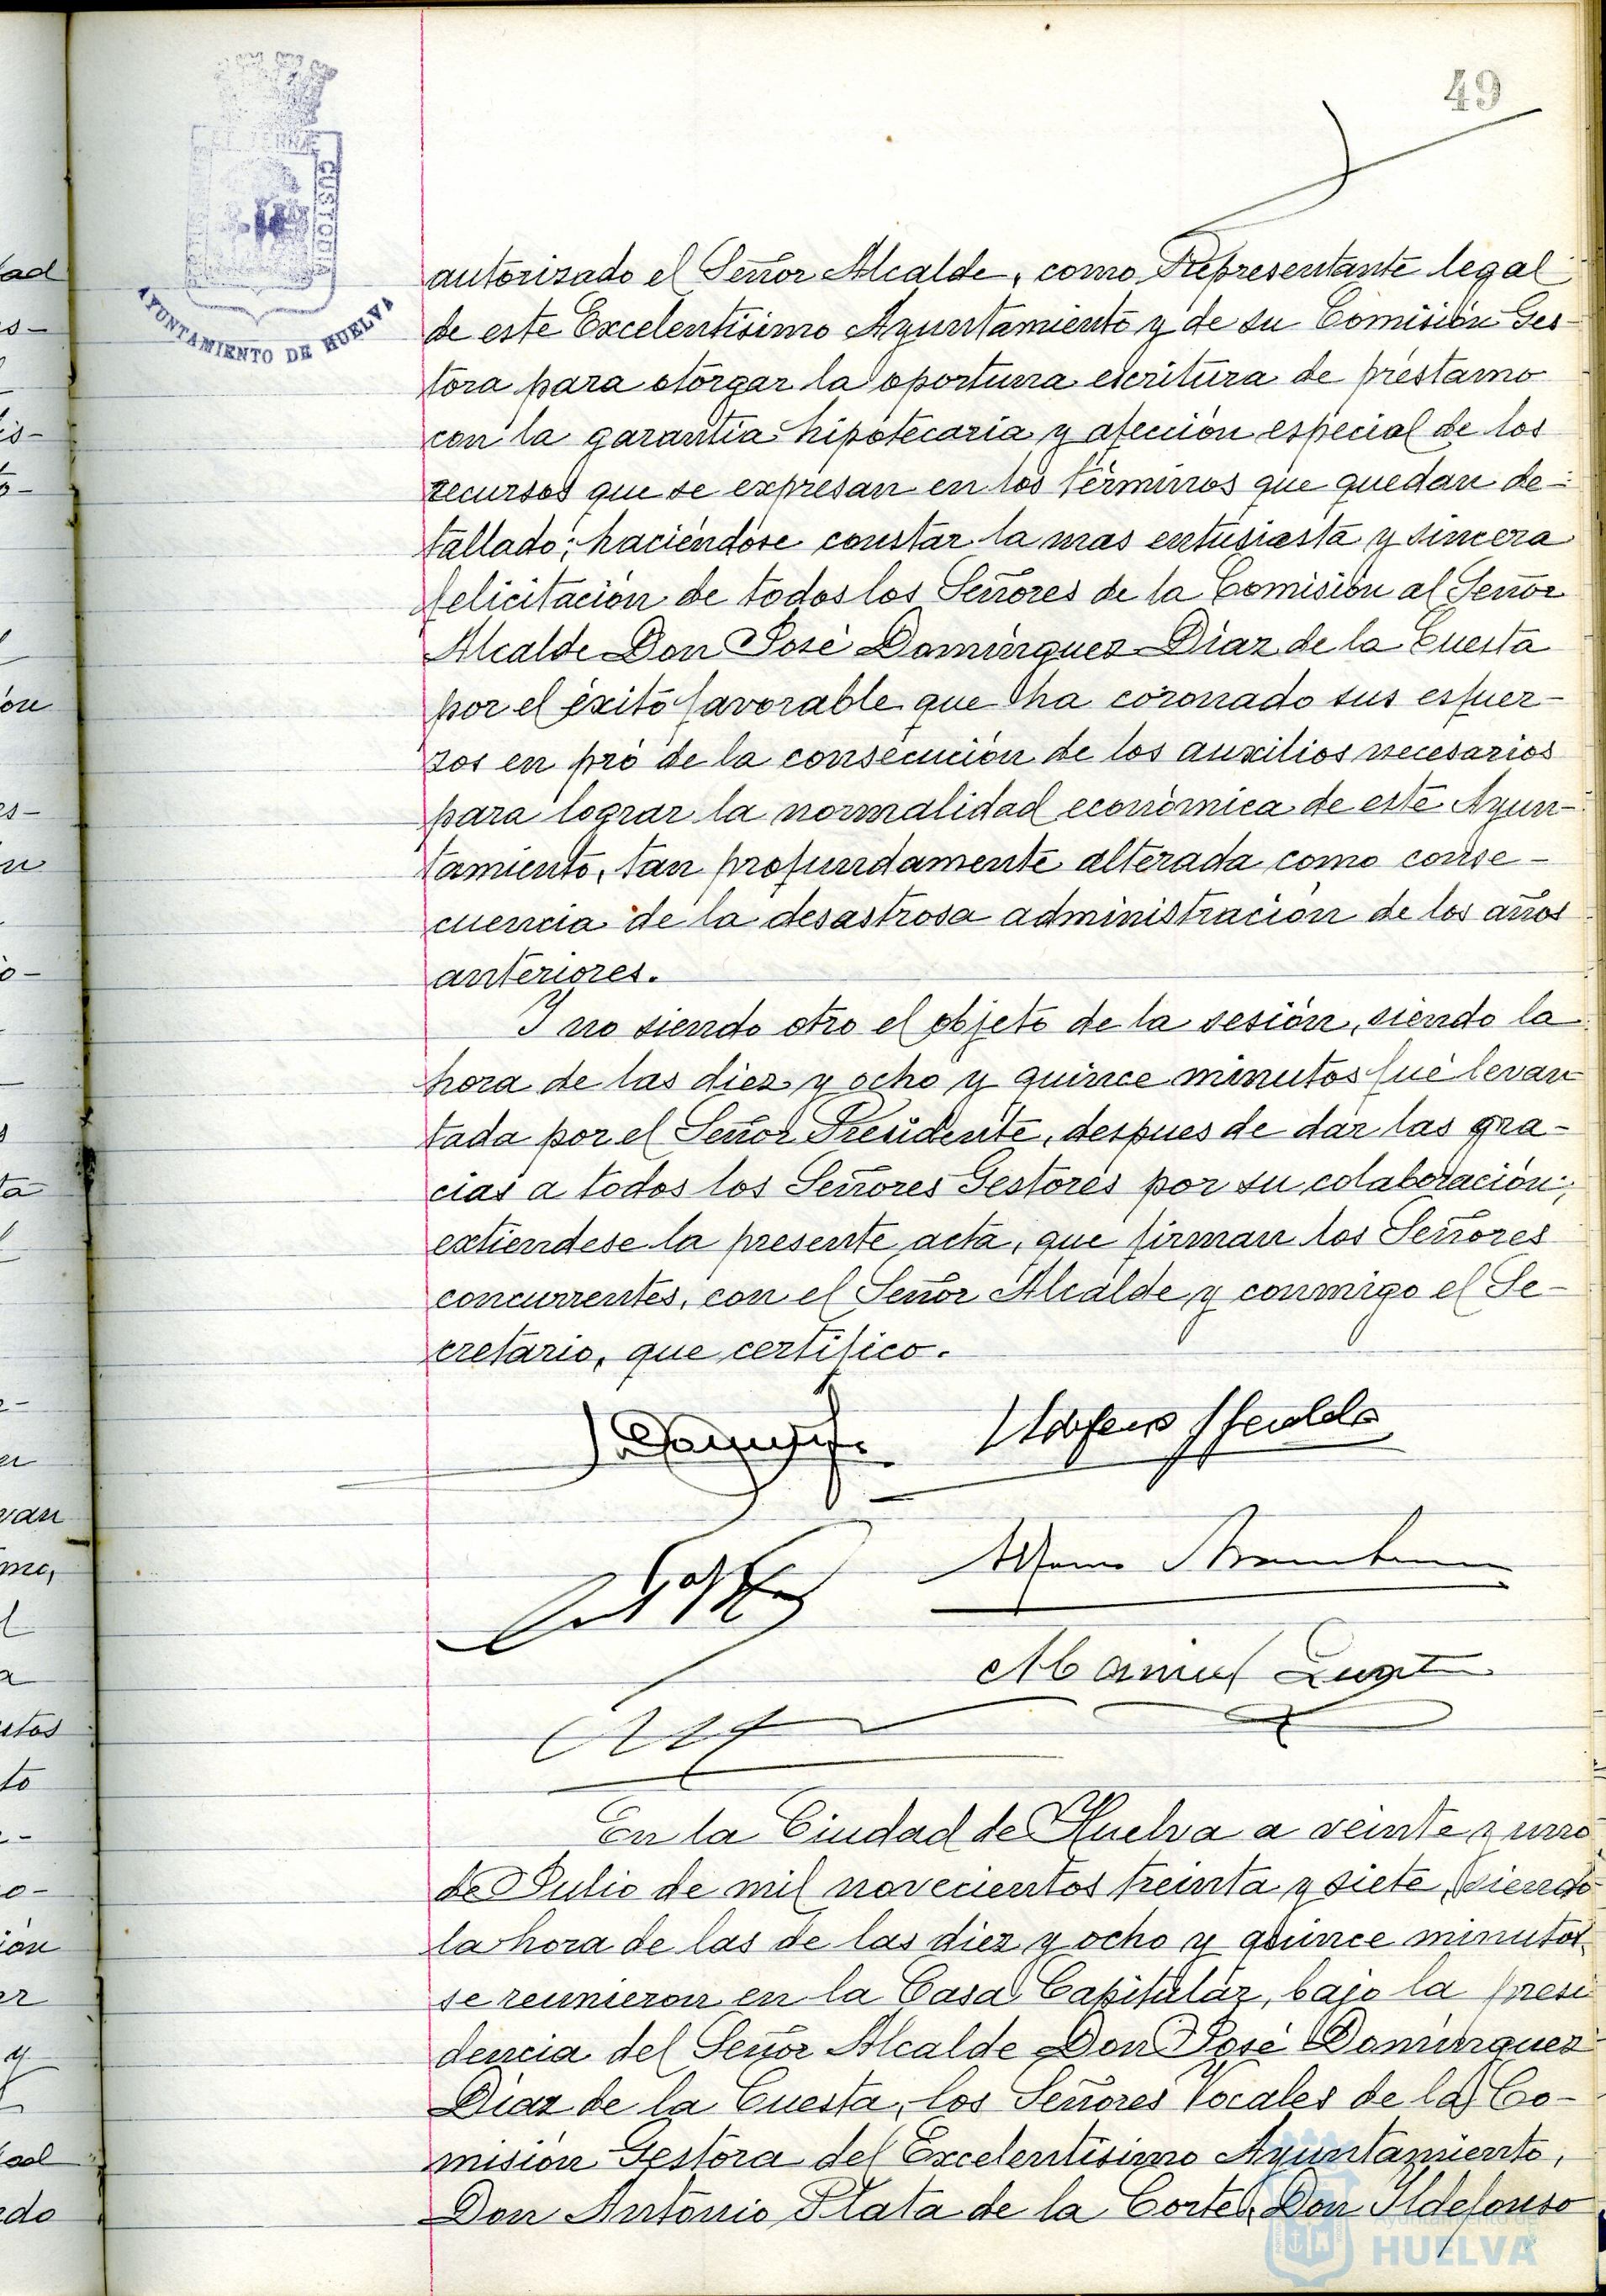 49
AYUNTAMIENTO DE HUELVA
autorizado el Señor Alcalde, como Representante legal
de este Excelentísimo Ayuntamiento y de su Comisión Ges-
tora para otorgar la oportuna escritura de préstamo
con la garantía hipotecaria y afección especial de los
recursos que se expresan en los términos que quedan de-
tallado; haciéndose constar la mas entusiasta y sincera
felicitación de todos los Señores de la Comisión al Señor
Alcalde Don José Domínguez Díaz de la Cuesta
por el éxito favorable que ha coronado sus esfuer-
zos en pró de la consecución de los auxilios necesarios
para lograr la normalidad económica de este Ayun-
tamiento, tan profundamente alterada como conse-
cuencia de la desastrosa administración de los años
anteriores.
Y no siendo otro el objeto de la sesión, siendo la
hora de las diez y ocho y quince minutos fué levan
tada por el Señor Presidente, despues de dar las gra-
cias a todos los Señores Gestores por su colaboración;
extiendese la presente acta, que firman los Señores
concurrentes, con el Señor Alcalde y conmigo el Se-
cretario, que certifico.
Manuel
En la Ciudad de Huelva a veinte y uno
de Julio de mil novecientos treinta y siete, siendo
la hora de las de las diez y ocho y quince minutos
se reunieron en la Casa Capitular, bajo la presi
dencia del Señor Alcalde Don José Domínguez
Díaz de la Cuesta, los Señores Vocales de la Co-
misión Gestora del Excelentísimo Ayuntamiento,
Don Antonio Plata de la Corte, Don Ildefonso
HUELVA